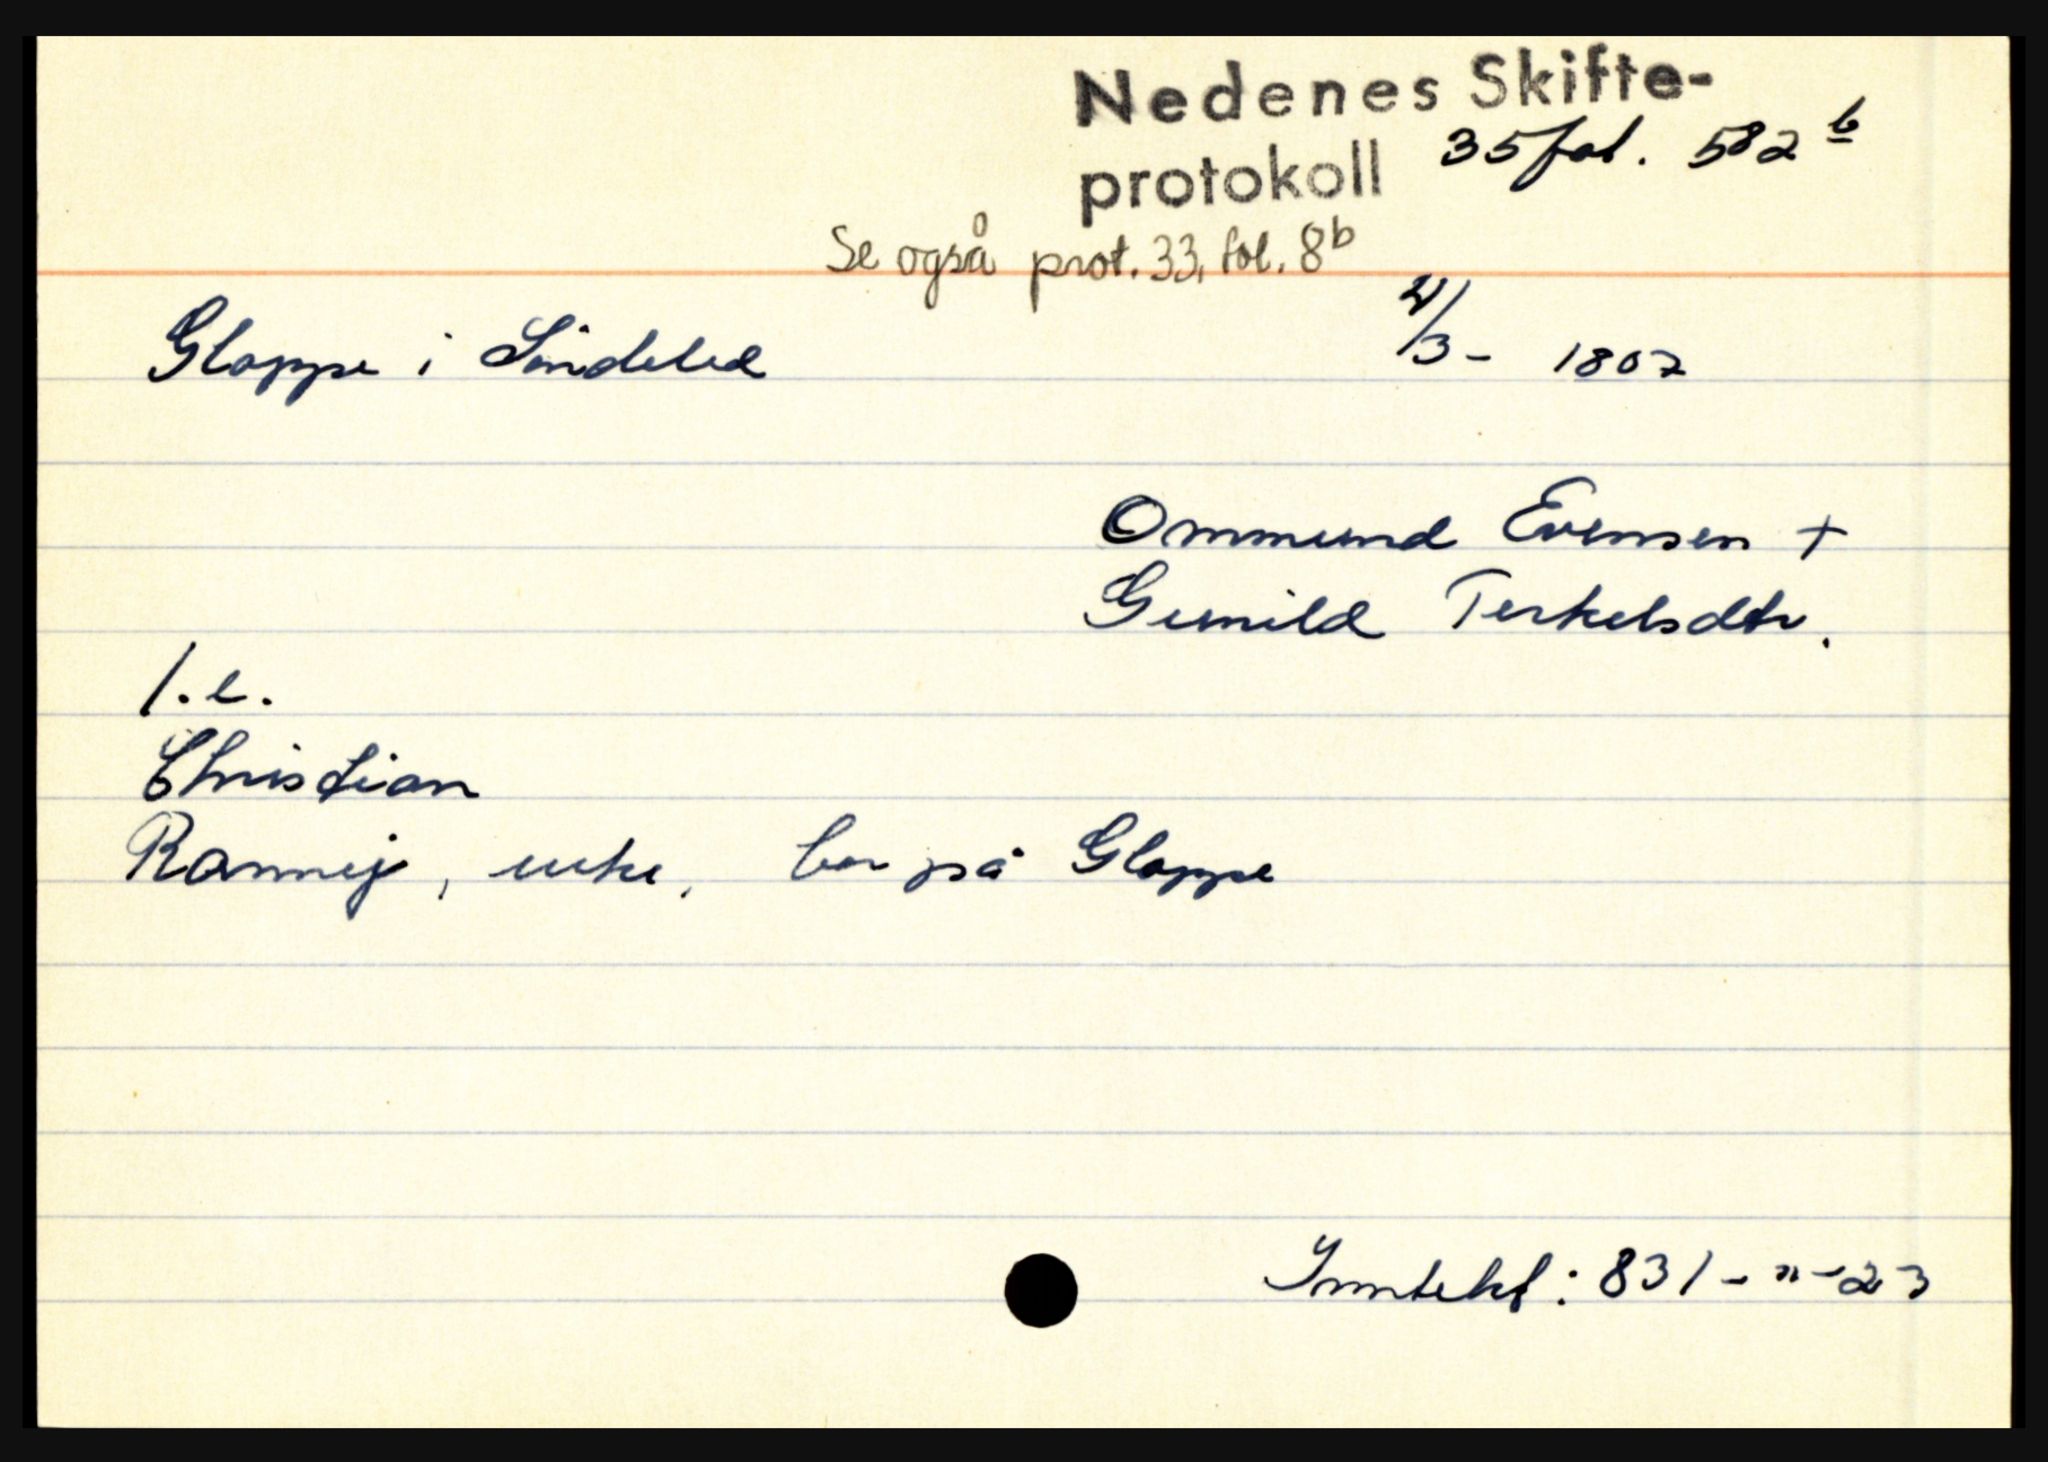 Nedenes Skifte-
protokoll 35 fol. 582 b
Se også prot. 33, fol. 8b
Gloppe i Söndeled 2/3 - 1807
Ommund Evensen +
Gunild Terkelsdtr.
1. e.
Christian
Rannej, enke, bor på Gloppe
Inntekt: 831 - " - 23